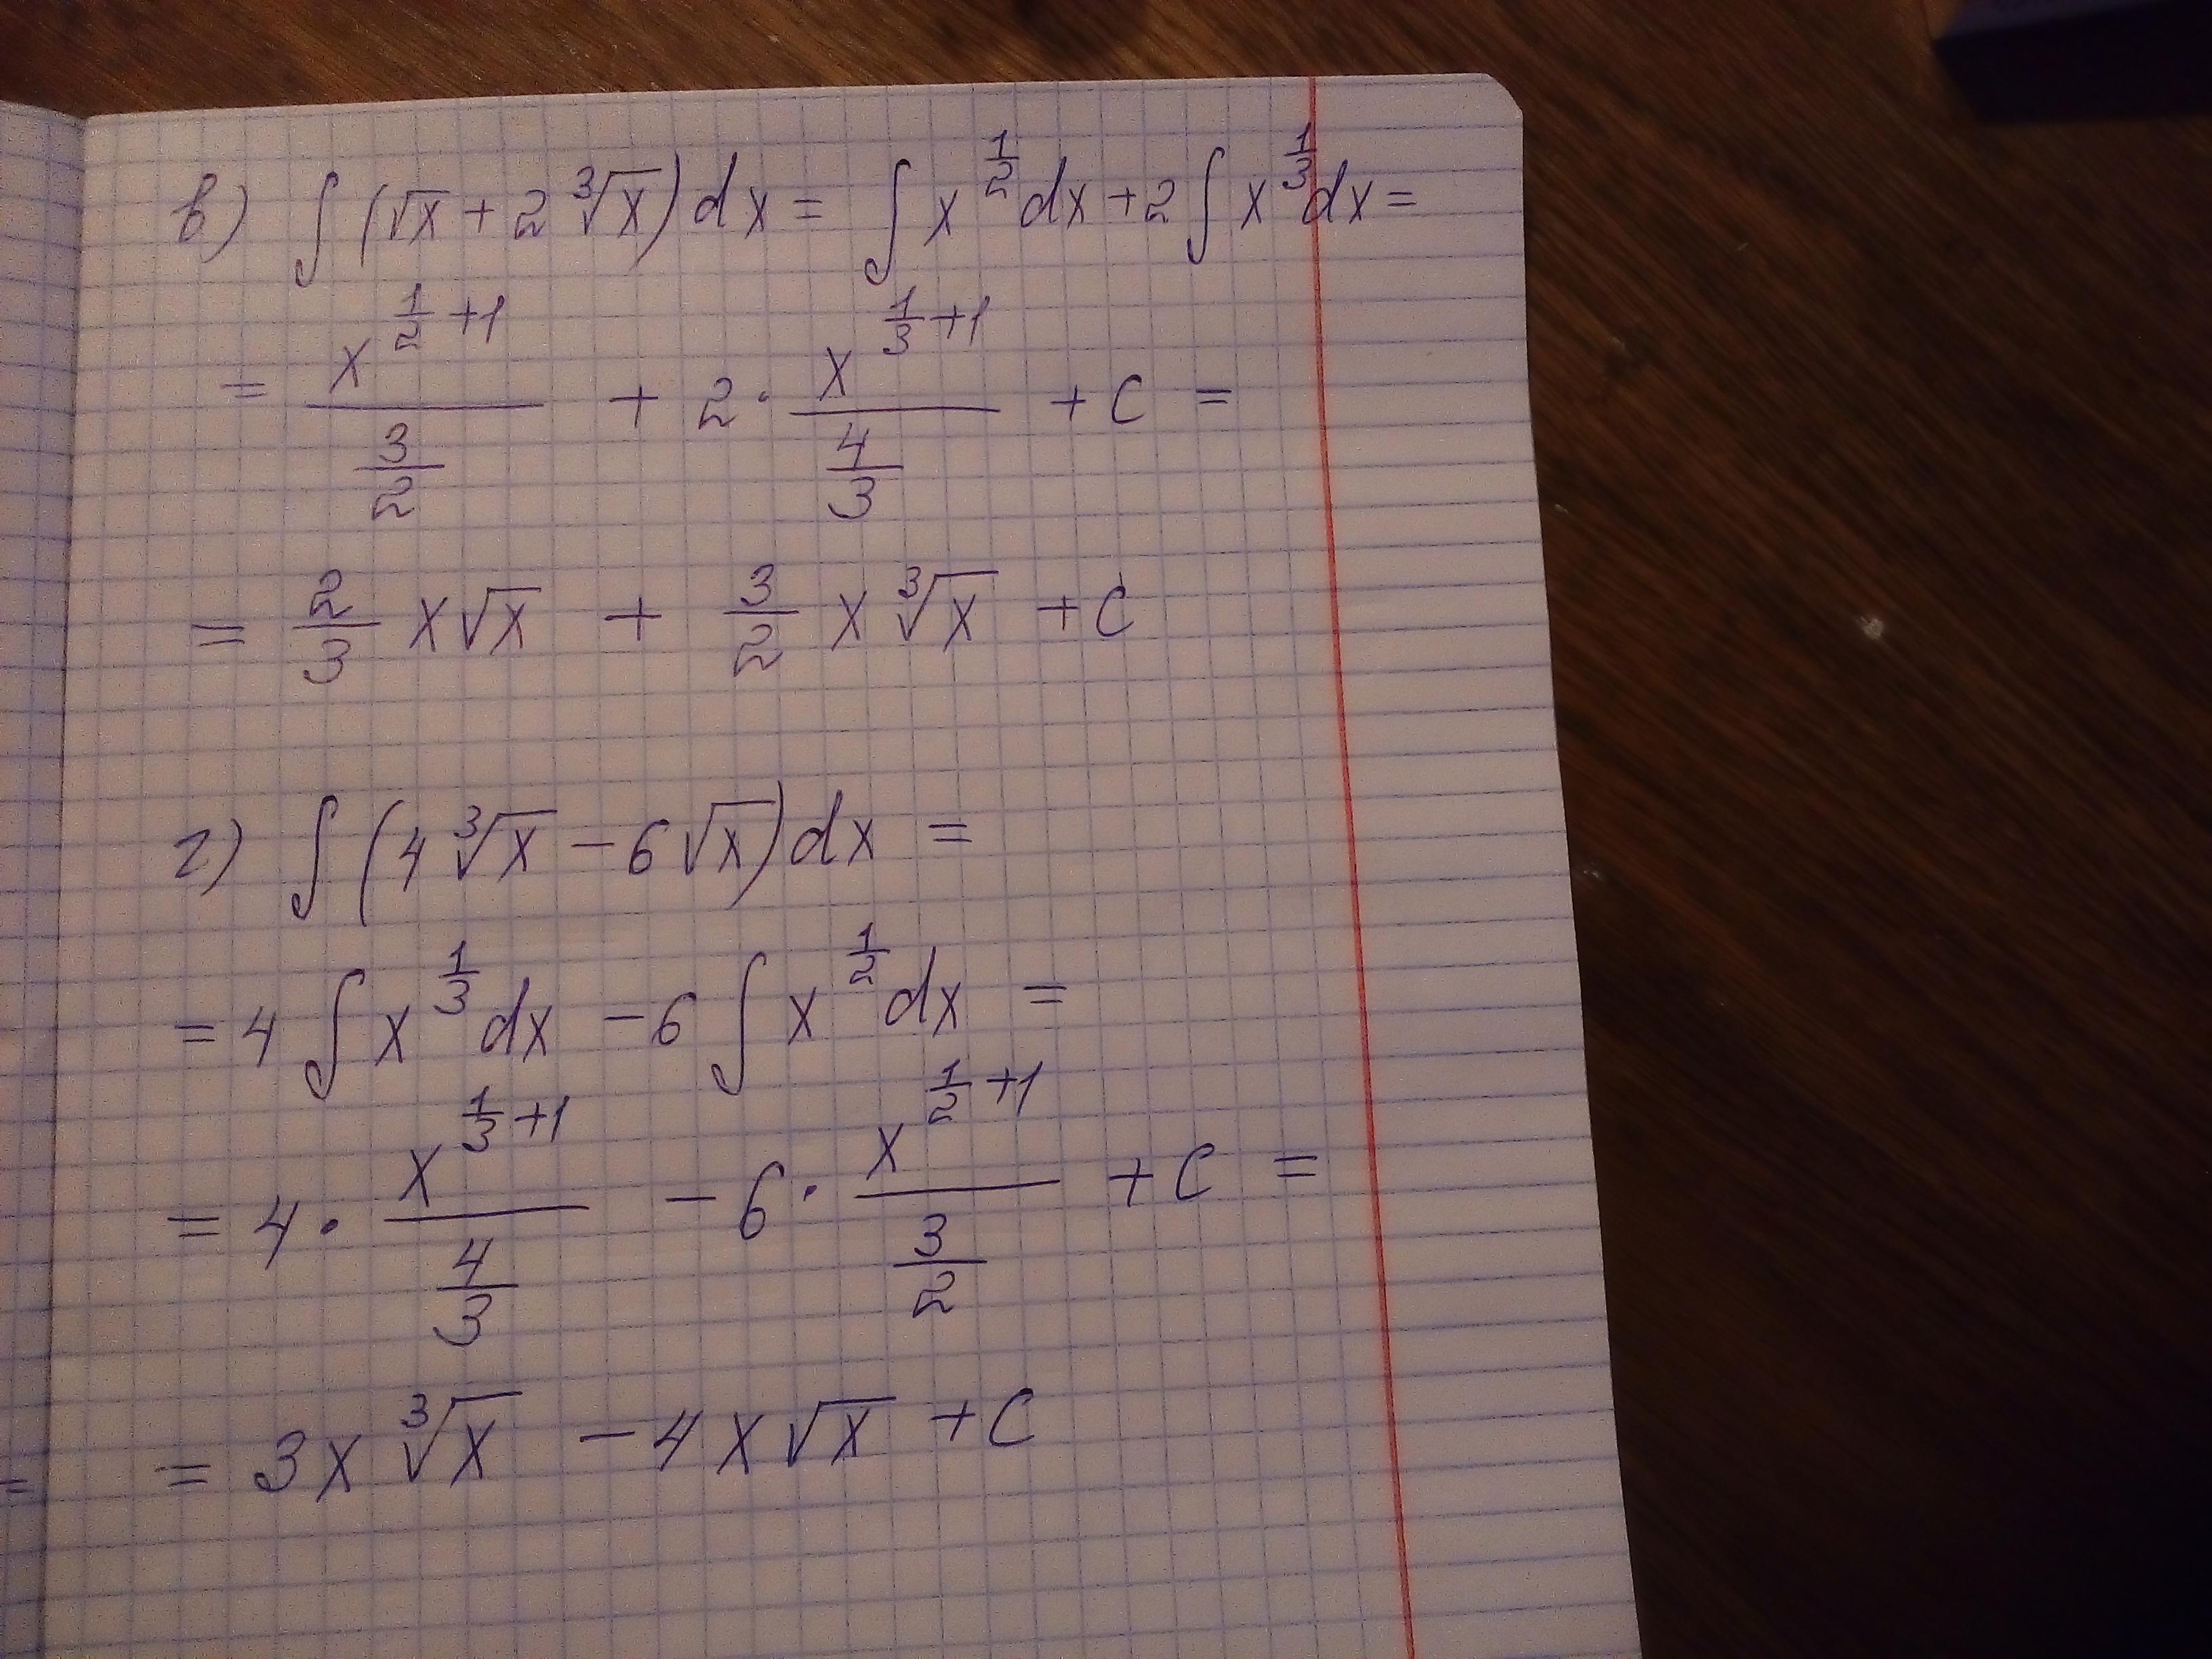 в) ∫(√x + 2∛x)dx = ∫x^{1/2}dx + 2∫x^{1/3}dx =
= x^{1/2+1}/(3/2) + 2·x^{1/3+1}/(4/3) + C =
= 2/3 x√x + 3/2 x∛x + C
г) ∫(4∛x − 6√x)dx =
= 4∫x^{1/3}dx − 6∫x^{1/2}dx =
= 4·x^{1/3+1}/(4/3) − 6·x^{1/2+1}/(3/2) + C =
= = 3x∛x − 4x√x + C